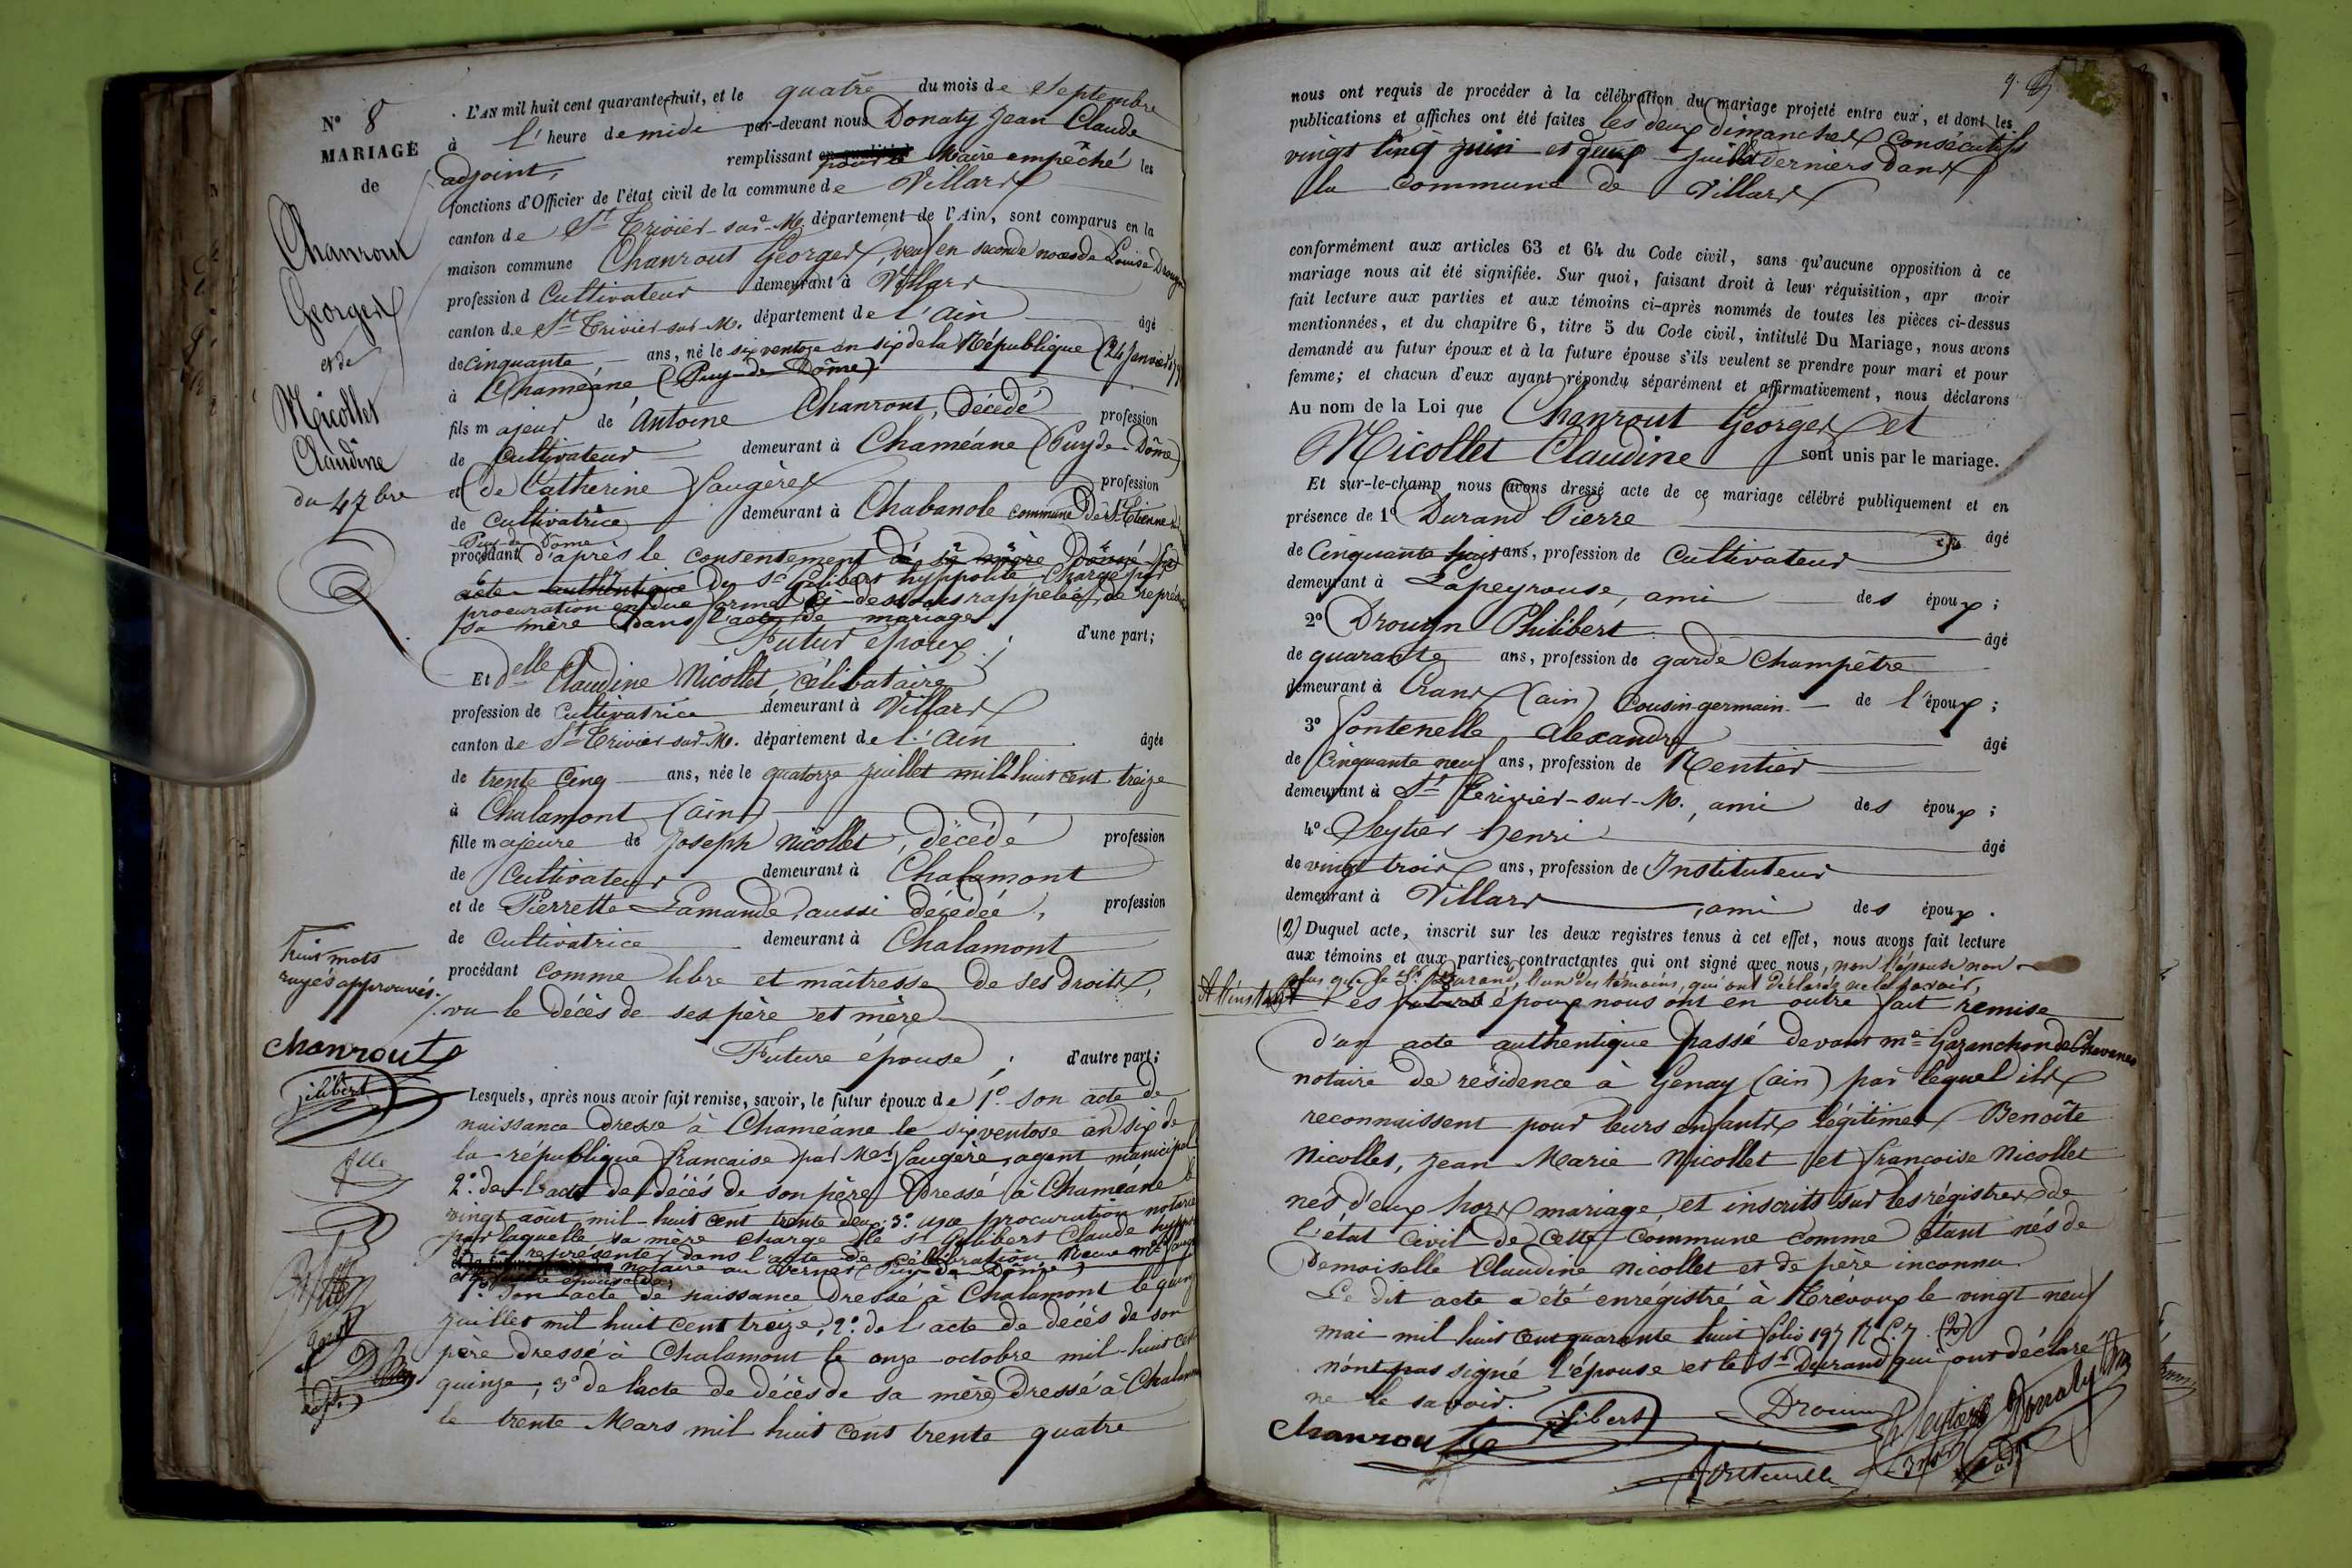 N° 8
MARIAGE
de
Chanrout
Georges
et de
Nicollet
Claudine
du 4 7bre
L'AN mil huit cent quarante-huit, et le quatre du mois de Septembre
à l'heure de midi par-devant nous Donaty Jean Claude
adjoint, remplissant pour le Maire empêché les
fonctions d'Officier de l'état civil de la commune de Villars
canton de St Trivier-sur-M. département de l'Ain, sont comparus en la
maison commune Chanrout Georges, veuf en seconde noces de Louise Drouyn
profession d Cultivateur demeurant à Villars
canton de St Trivier-sur-M. département de l'ain âgé
de Cinquante ans, né le six ventose an six de la République (24 Janvier
à Chaméane (Puy-de-Dôme)
fils majeur de Antoine Chanrout, décédé profession
de Cultivateur demeurant à Chaméane (Puy de Dôme)
et de Catherine Faugères profession
de cultivatrice demeurant à Chabanole commune de St Etienne
Puy-de-Dôme
procédant d'après le consentement de sa mère donné par
acte authentique du Sr Gilibert hyppolite chargé par
procuration en due forme ci-dessous rappelée, de représenter
sa mère dans l'acte de mariage
Futur époux ; d'une part;
Et delle Claudine Nicollet, célibataire
profession de cultivatrice demeurant à Villars
canton de St Trivier-sur-M. département de l'ain âgée
de trente cinq ans, née le quatorze juillet mil huit cent treize
à Chalamont (ain)
fille majeure de Joseph nicollet, décédé profession
de Cultivateur demeurant à Chalamont
et de Pierrette Lamande, aussi décédée, profession
de cultivatrice demeurant à Chalamont
procédant comme libre et maîtresse de ses droits,
vu le décès de ses père et mère
Future épouse ; d'autre part;
huit mots
rayés approuvés.
chanrout
jilibert
Lesquels, après nous avoir fait remise, savoir, le futur époux de 1° son acte de
naissance dressé à Chaméane le six ventose an six de
la république française par Me Faugère, agent municipal
2° de l'acte de décès de son père dressé à Chaméane le
vingt août mil-huit cent trente deux; 3° une procuration notariée
par laquelle sa mère charge le Sr Gilibert Claude hyppolite
de la représenter dans l'acte de célébration, Reçue Me
notaire au Vernet (Puy-de-Dôme)
et la future épouse de;
1° Son acte de naissance dressé à Chalamont le quinze
juillet mil huit cent treize, 2° de l'acte de décès de son
père dressé à Chalamont le onze octobre mil-huit cent
quinze, 3° de l'acte de décès de sa mère dressé à Chalamont
le trente Mars mil huit cent trente quatre
9.
nous ont requis de procéder à la célébration du mariage projeté entre eux, et dont les
publications et affiches ont été faites les deux dimanches consécutifs
vingt cinq juin et deux juillet derniers dans
la commune de Villars
conformément aux articles 63 et 64 du Code civil, sans qu'aucune opposition à ce
mariage nous ait été signifiée. Sur quoi, faisant droit à leur réquisition, apr avoir
fait lecture aux parties et aux témoins ci-après nommés de toutes les pièces ci-dessus
mentionnées, et du chapitre 6, titre 5 du Code civil, intitulé Du Mariage, nous avons
demandé au futur époux et à la future épouse s'ils veulent se prendre pour mari et pour
femme; et chacun d'eux ayant répondu séparément et affirmativement, nous déclarons
Au nom de la Loi que Chanrout Georges et
Nicollet Claudine sont unis par le mariage.
Et sur-le-champ nous avons dressé acte de ce mariage célébré publiquement et en
présence de 1° Durand Pierre âgé
de Cinquante huit ans, profession de cultivateur
demeurant à Lapeyrouse, ami des époux ;
2° Drouyn Philibert âgé
de quarante ans, profession de garde champêtre
demeurant à Crans (ain) cousin germain de l'époux ;
3° Fontenelle alexandre âgé
de Cinquante neuf ans, profession de Rentier
demeurant à St Trivier-sur-M., ami des époux ;
4° Seytier henri âgé
de vingt trois ans, profession de Instituteur
demeurant à Villars, ami des époux.
(2) Duquel acte, inscrit sur les deux registres tenus à cet effet, nous avons fait lecture
aux témoins et aux parties contractantes qui ont signé avec nous, non l'épouse non
plus que le Sr Durand, l'un des témoins, qui ont déclarés ne le savoir,
A l'instant Les futurs époux nous ont en outre fait remise
d'un acte authentique passé devant me Gazanchon de Chavanes
notaire de résidence à Genay (ain) par lequel ils
reconnaissent pour leurs enfants légitimes Benoîte
Nicollet, Jean Marie Nicollet et françoise Nicollet
nés d'eux hors mariage, et inscrits sur les régistres de
l'état civil de cette commune comme étant nés de
Demoiselle Claudine nicollet et de père inconnu.
Le dit acte a été enrégistré à Trévoux le vingt neuf
mai mil huit cent quarante huit folio 197 R° C. 7. (2)
n'ont pas signé l'épouse et le Sr Durand qui ont déclaré
ne le savoir.
chanrout jilibert Drouin Seytier Donaty
Fontenelle adjt